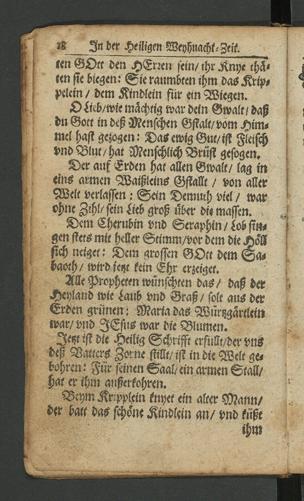 18 In der Heiligen Weyhnacht-Zeit.
ten GOtt den HErren sein/ ihr Knye thä-
ten sie biegen: Sie raumbten ihm das Krip-
pelein/ dem Kindlein für ein Wiegen.
O Lieb/wie mächtig war dein Gwalt/ daß
du Gott in deß Menschen Gstalt/ vom Him-
mel hast gezogen: Das ewig Gut/ist Fleisch
vnd Blut/ hat Menschlich Brüst gesogen.
Der auf Erden hat allen Gwalt/ lag in
eins armen Waißleins Gstallt / von aller
Welt verlassen; Sein Demuth viel / war
ohne Zihl/ sein Lieb groß über die massen.
Dem Cherubin vnd Seraphin/ Lob sin-
gen stets mit heller Stimm/vor dem die Höll
sich neiget: Dem grossen GOtt dem Sa-
baoth/ wird jetzt kein Ehr erzeiget.
Alle Propheten wünschten das/ daß der
Heyland wie Laub vnd Graß/ solt aus der
Erden grünen: Maria das Würtzgärtlein
war/ vnd JEsus war die Blumen.
Jetzt ist die Heilig Schrifft erfüllt/der vns
deß Vatters Zorne stillt/ ist in die Welt ge-
bohren: Für seinen Saal/ ein armen Stall/
hat er ihm außerkohren.
Beym Kripplein knyet ein alter Mann/
der batt das schöne Kindlein an/ vnd küßt
ihm